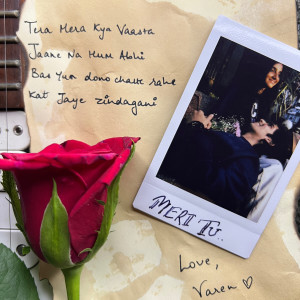 Tera Mera Kya Vaasta
Jaane Na Hum Abhi
Bas Yun dono chalte rahe
Kat Jaye zindagani
MERI TU.
Love,
Varen ♡